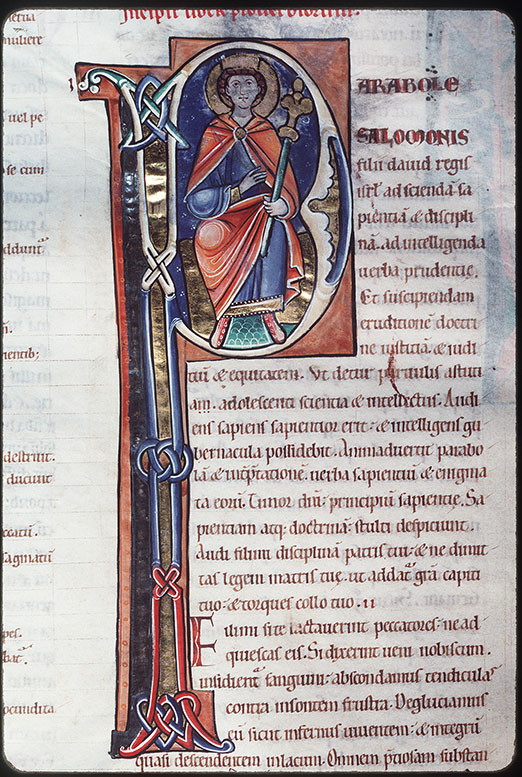 Incipit liber prouerbiorum.
PARABOLE
SALOMONIS
filii dauid regis
isrł. ad sciendā sa
pientiā & discipli
nā. ad intelligenda
uerba prudentie.
Et suscipiendam
eruditionē doctri
ne iusticiā. & iudi
tiū & equitatem. Ut detur paruulis astuti
am. adolescenti scientia & intellectus. Audi
ens sapiens sapientior erit: & intelligens gu
bernacula possidebit. Animaduertet parabo
lā & interptationē. uerba sapientiū & enigma
ta eorū. Timor dn̄i principiū sapientie. Sa
pientiam atq; doctrinā stulti despiciunt.
Audi fili mi disciplinā patris tui: & ne dimit
tas legem matris tue. ut addat̄ grā capiti
tuo: & torques collo tuo. ii
Fili mi si te lactauerint peccatores: ne ad
quiescas eis. Si dixerint ueni nobiscum.
insidiem̄ sanguini: abscondamus tendiculā
contra insontem frustra. Deglutiamus
eū sicut infernus uiuentem: & integrū
quasi descendentem in lacum. Omnem p̄ciosam substan
muliere
uel pe
se cum
destruit.
ducunt
saginatū